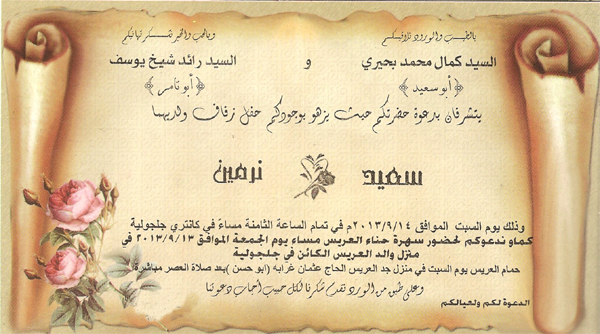 بالطيب والورود تلاقيكم
وبالحب والخير نشكر تهانيكم
السيد كمال محمد بحيري و السيد رائد شيخ يوسف
﴿أبو سعيد﴾ ﴿أبو تامر﴾
يتشرفان بدعوة حضرتكم حيث يزهو بوجودكم حفل زفاف ولديهما
سعيد نرمين
وذلك يوم السبت الموافق ٢٠١٣/٩/١٤م في تمام الساعة الثامنة مساءً في كانتري جلجولية
كما وندعوكم لحضور سهرة حناء العريس مساء يوم الجمعة الموافق ٢٠١٣/٩/١٣ في
منزل والد العريس الكائن في جلجولية
حمام العريس يوم السبت في منزل جد العريس الحاج عثمان غرابه (ابو حسن) بعد صلاة العصر مباشرة
وعلى طبق من الورد نقدم شكرنا لكل حبيب أجاب دعوتنا
الدعوة لكم ولعيالكم